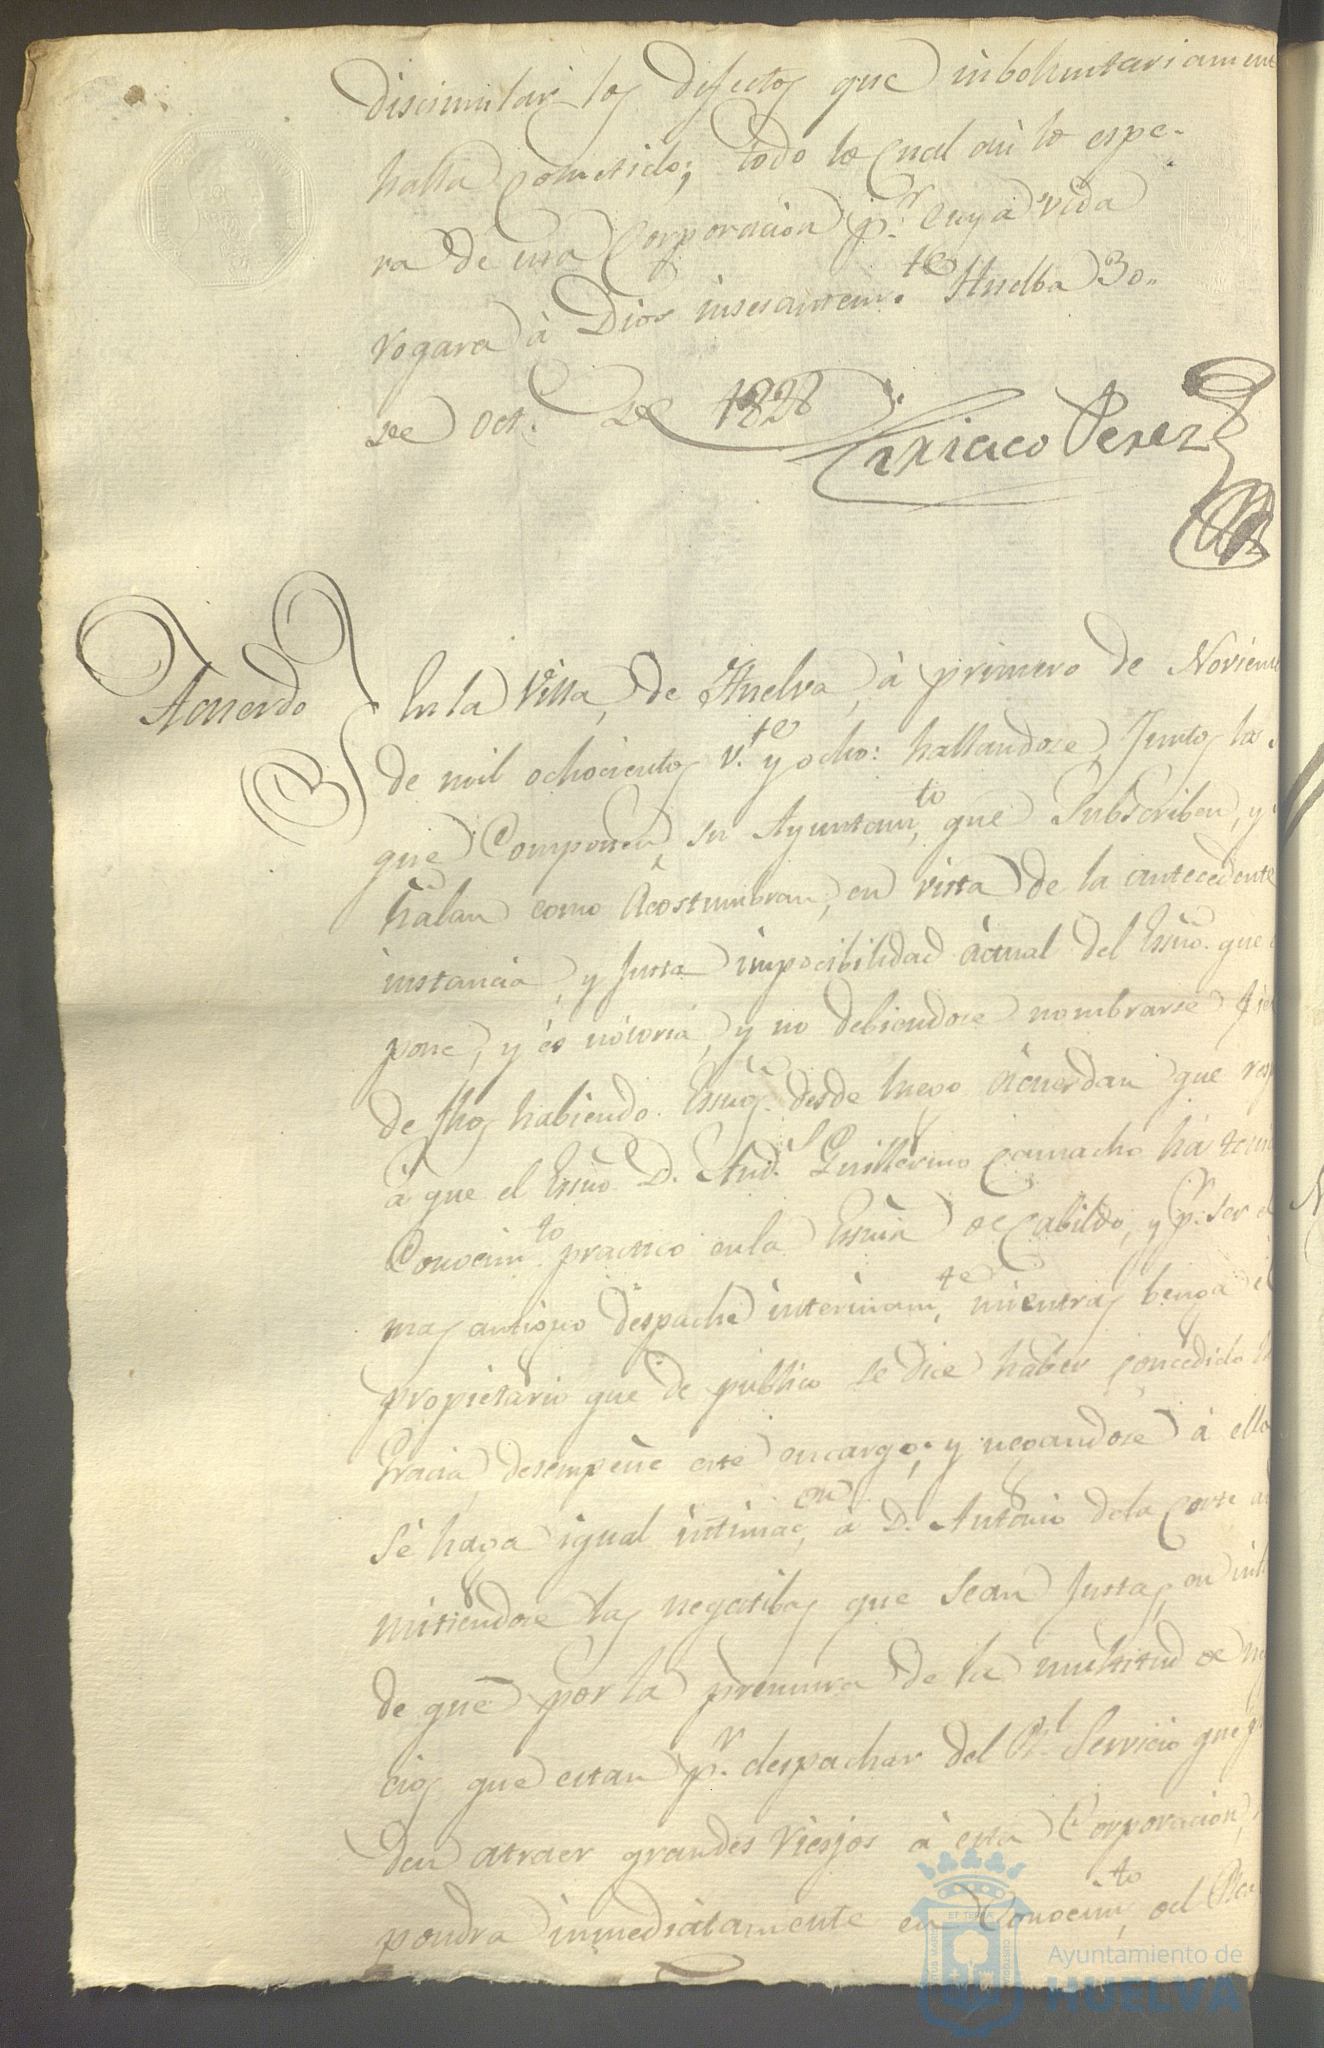 discimular los defectos que inboluntariamen
halla cometido; todo lo qual asi lo espe-
ra de una Corporacion p.r cuya vida
rogara à Dios insesantem.te Huelba 30..
de Oct. de 1828
Ciriaco Perez
Acuerdo
En la Villa de Huelva, à primero de Noviem
de mil ochocientos v.te y ocho: hallandose Juntos los
que Componen su Ayuntam.to que Subscriben, y
ñalan como Acostumbran, en vista de la antecedente
instancia, y Justa impocibilidad àctual del Essno. que
pone, y és nótoria, y no debiendose nombrarse fiel
de fhos habiendo Essnos. desde luego àcuerdan que
à que el Essno D. And.s Guillermo Camacho há
Conocim.to practico en la Essnia de Cabildo, y p.r ser el
mas antiguo despache interinam.te mientras benga el
propietario que de publico se dice haber concedido
Gracia, desempeñe este encargo; y negandose à ello
Sé haga igual intimac.on à D. Antonio de la Corte
mitiendose las negatibas que sean Justas, en
de que por la premura de la multitud de
cios que estan p.r despachar del R.l Servicio que
den atraer grandes riesjos à esta Corporacion,
pondra inmediatamente en Conocim.to del
Ayuntamiento de
HUELVA